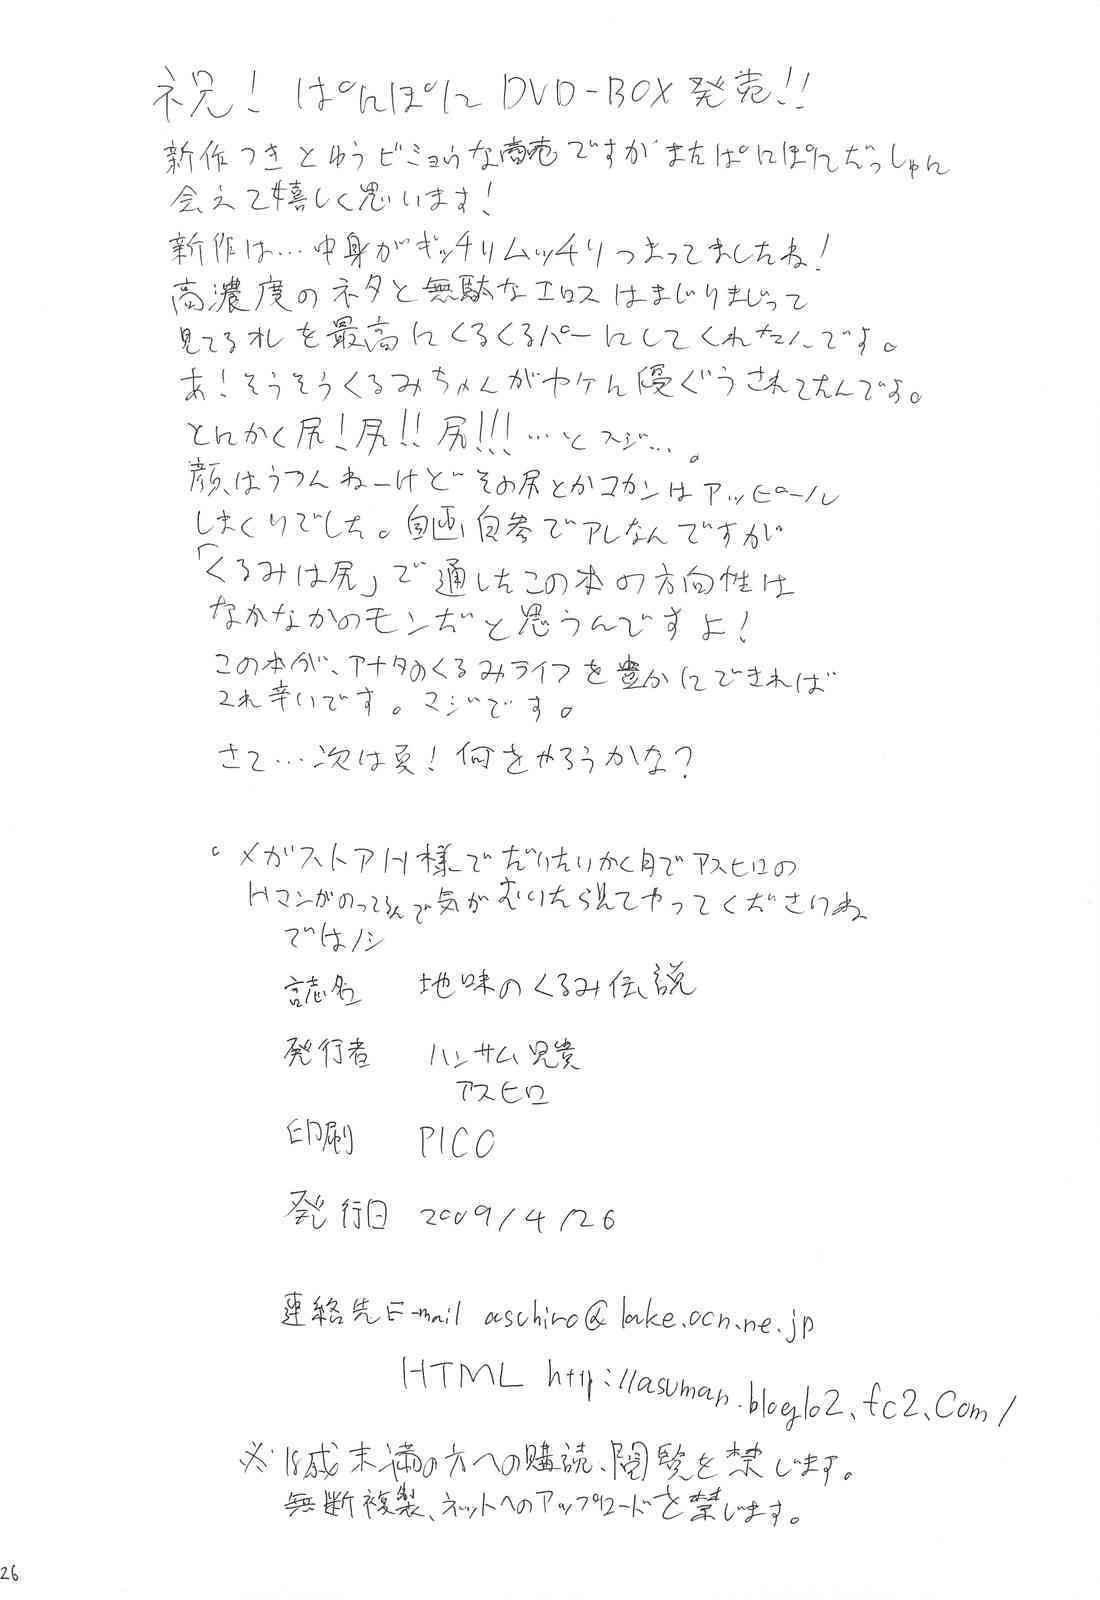 祝! ぱにぽに DVD-BOX 発売!!
新作つきとゆうビミョウな商売ですがまたぱにぽにだっしゅに
会えて嬉しく思います!
新作は…中身がギッチリムッチリつまってましたね!
高濃度のネタと無駄なエロスはまじりまじって
見てる オレを最高にくるくるパーにしてくれたんです。
あ!そうそうくるみちゃんがヤケに優ぐうされてたんですよ。
とにかく尻!尻!!尻!!!…とスジ…。
顔はうつんねーけどその尻とかコカンはアッピール
しまくりでした。自画自参でアレなんですが
「くるみは尻」で通したこの本の方向性は
なかなかのモンだと思うんですよ!
この本が、アナタのくるみライフを豊かにできれば
これ幸いです。マジです。
さて…次は夏!何をやろうかな?
。メガストアH様でだいたいかく月でアスヒロの
Hマンがのってるんで気がむいたら見てやってくださいね
ではノシ
誌名 地味のくるみ伝説
発行者 ハンサム兄貴
アスヒロ
印刷 PICO
発行日 2009/4/26
連絡先 E-mail aschiro@lake.ocn.ne.jp
HTML http://asuman.blog102.fc2.com/
※18歳未満の方への購読、閲覧を禁じます。
無断複製、ネットへのアップロードを禁じます。
26